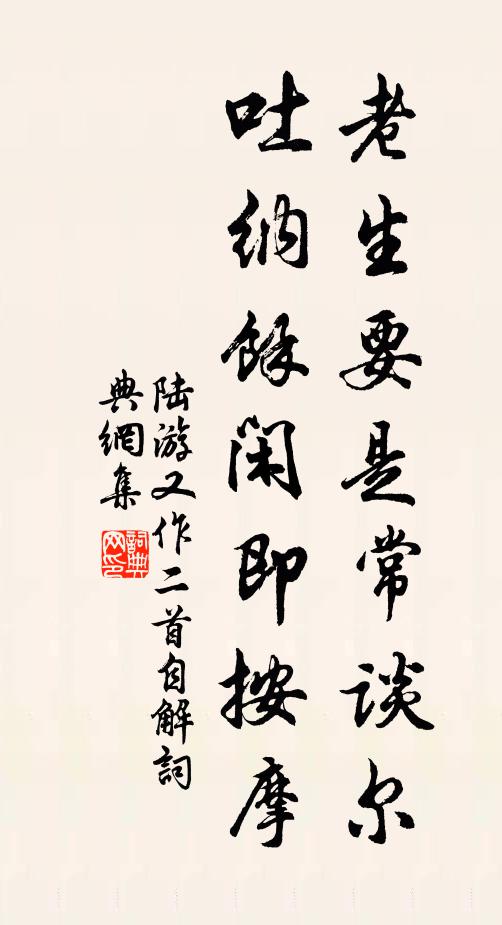 老生要是常谈尔
吐纳馀闲即按摩
陆游又作二首自解词
典網集
詞典网印